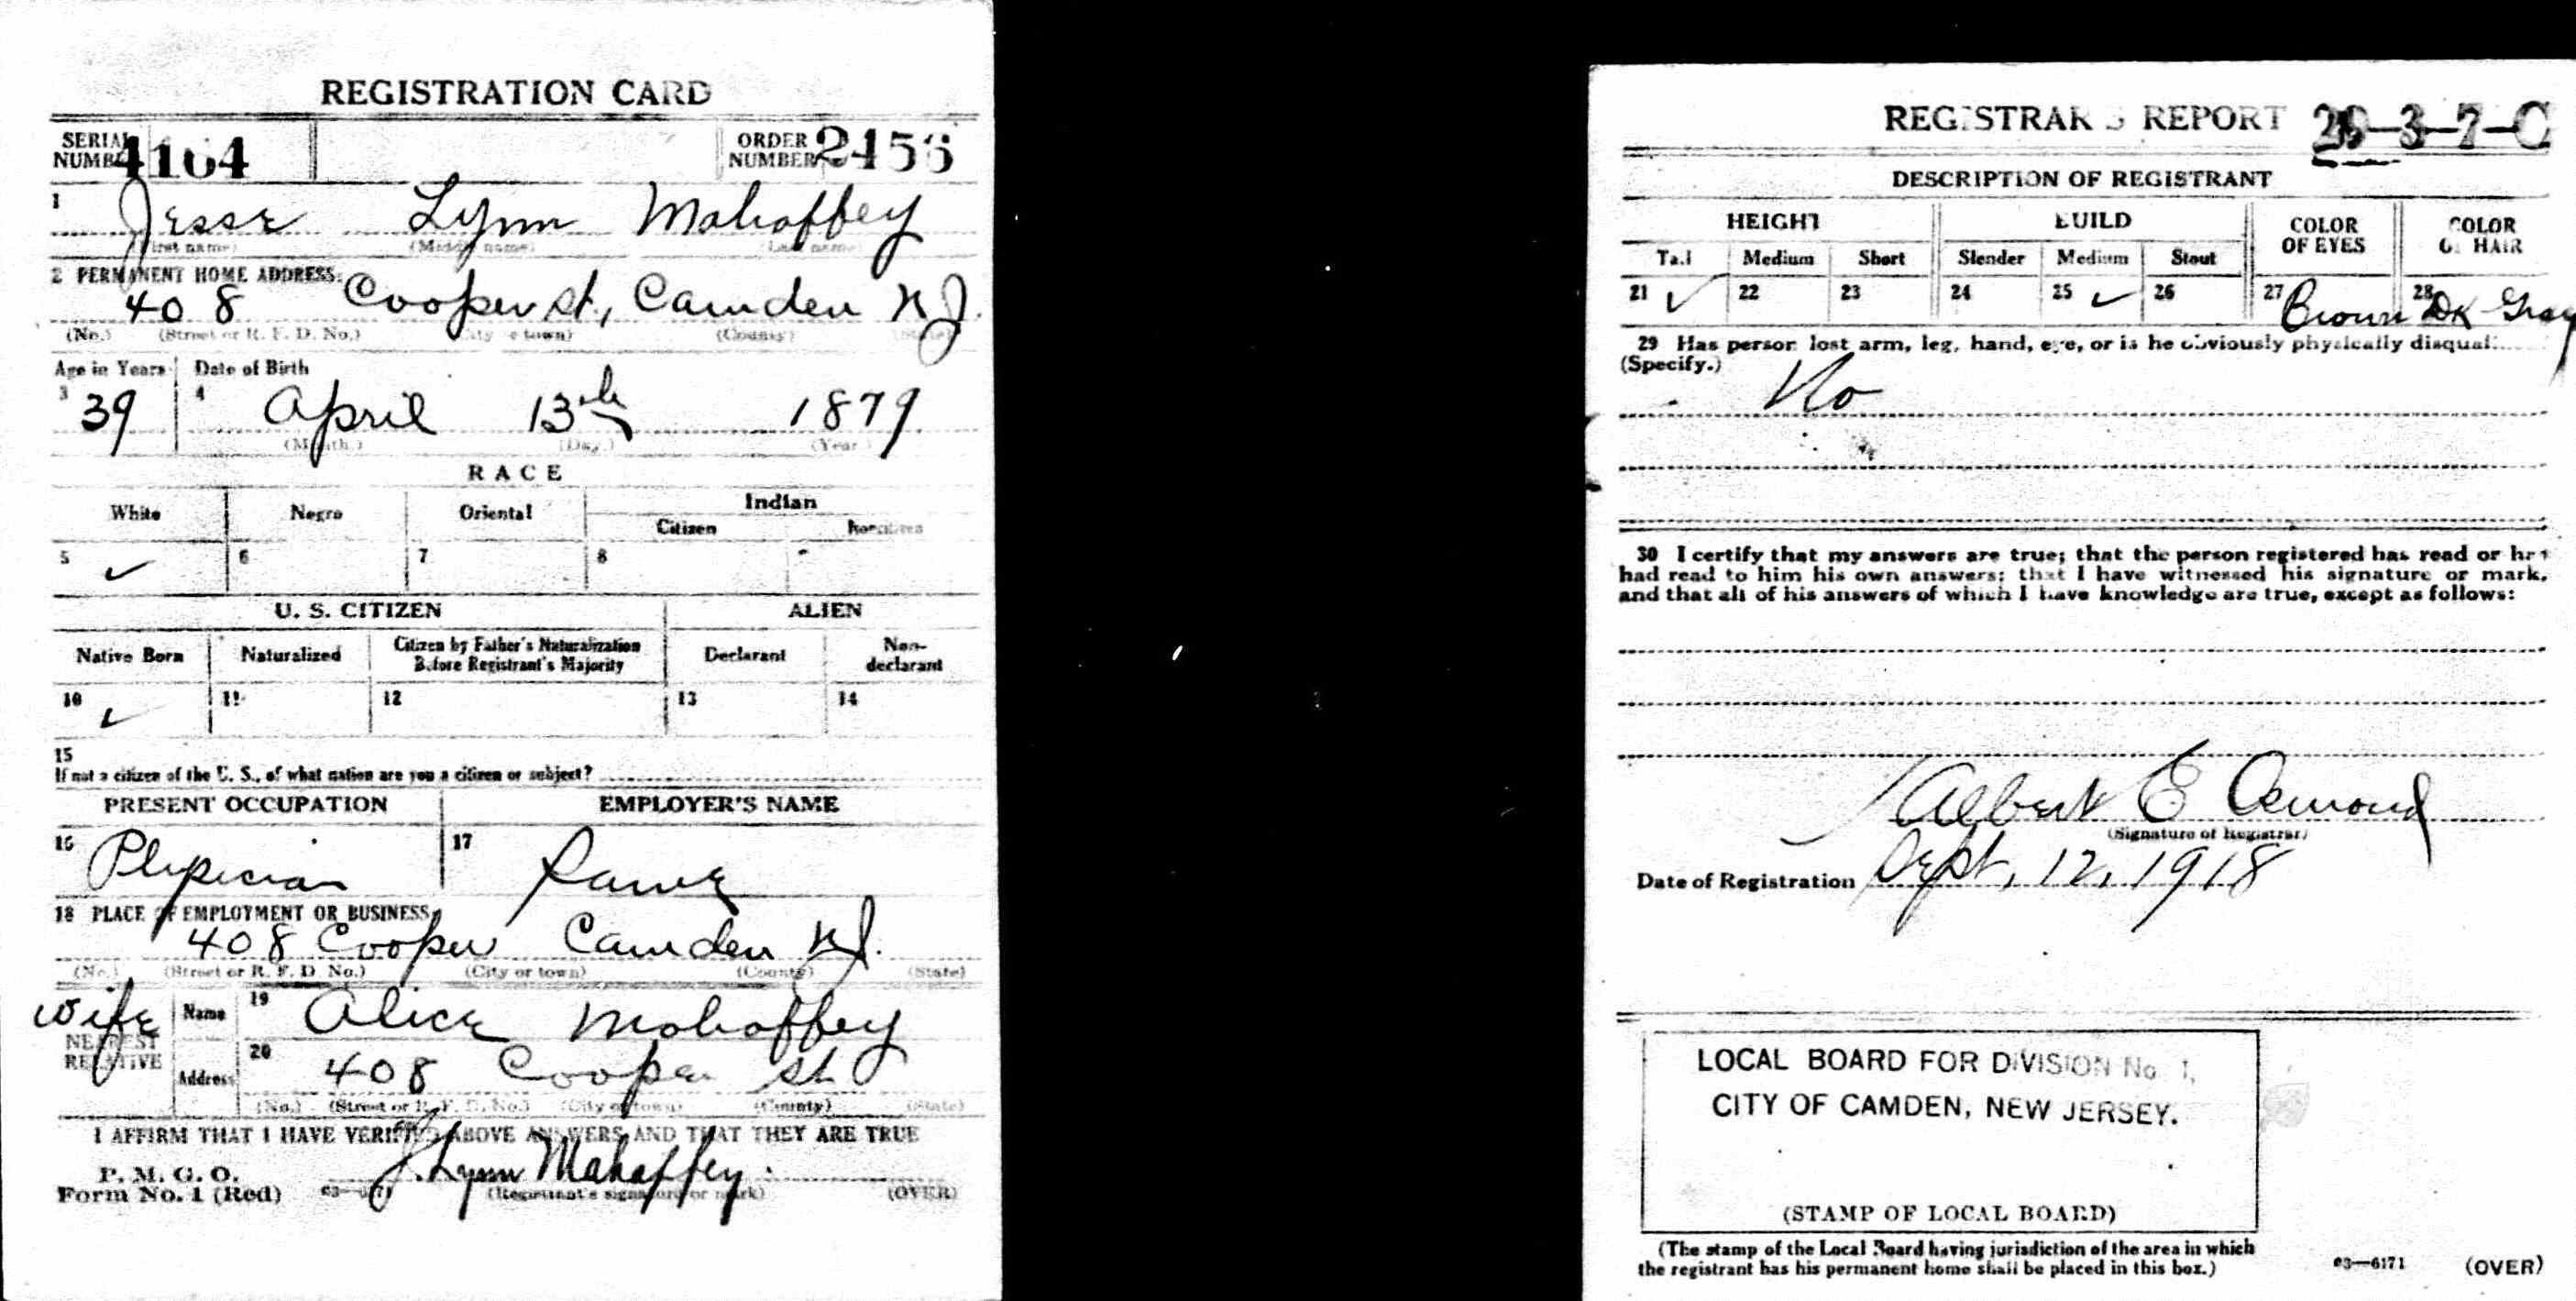 REGISTRATION CARD
SERIAL NUMBER 4164
ORDER NUMBER
1 Jesse Lynn Mahaffey
(First name) (Middle name) (Last name)
2 PERMANENT HOME ADDRESS:
408 Cooper st, Camden N J.
(No.) (Street or R. F. D. No.) (City or town) (County) (State)
Age in Years Date of Birth
3 39 4 April 13th 1879
(Month.) (Day.) (Year.)
RACE
White Negro Oriental Indian
Citizen Noncitizen
5 ✓ 6 7 8
U. S. CITIZEN ALIEN
Native Born Naturalized Citizen by Father's Naturalization Before Registrant's Majority Declarant Non-declarant
10 ✓ 11 12 13 14
15
If not a citizen of the U. S., of what nation are you a citizen or subject?
PRESENT OCCUPATION EMPLOYER'S NAME
16 Physician 17
18 PLACE OF EMPLOYMENT OR BUSINESS:
408 Cooper Camden N.J.
(No.) (Street or R. F. D. No.) (City or town) (County) (State)
wife
NEAREST RELATIVE
Name 19 Alice Mahaffey
Address 20 408 Cooper st
(No.) (Street or R. F. D. No.) (City or town) (County) (State)
I AFFIRM THAT I HAVE VERIFIED ABOVE ANSWERS AND THAT THEY ARE TRUE
P. M. G. O.
Form No. 1 (Red) 03—6171 J. Lynn Mahaffey.
(Registrant's signature or mark) (OVER)
REGISTRAR'S REPORT 29-3-7-C
DESCRIPTION OF REGISTRANT
HEIGHT BUILD COLOR OF EYES COLOR OF HAIR
Tall Medium Short Slender Medium Stout
21 ✓ 22 23 24 25 ✓ 26 27 Brown 28 Dk Gray
29 Has person lost arm, leg, hand, eye, or is he obviously physically disqual
(Specify.) No
30 I certify that my answers are true; that the person registered has read or has
had read to him his own answers; that I have witnessed his signature or mark,
and that all of his answers of which I have knowledge are true, except as follows:
Albert E Osmond
(Signature of Registrar)
Date of Registration Sept. 12, 1918
LOCAL BOARD FOR DIVISION No. 1,
CITY OF CAMDEN, NEW JERSEY.
(STAMP OF LOCAL BOARD)
(The stamp of the Local Board having jurisdiction of the area in which
the registrant has his permanent home shall be placed in this box.)
03—6171 (OVER)